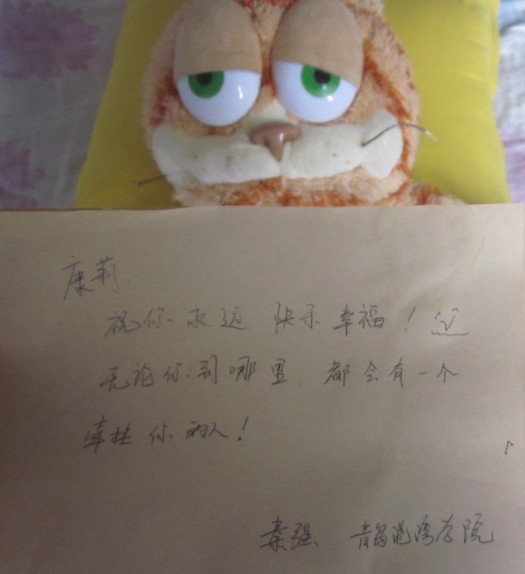 康莉
祝你永远快乐幸福！
无论你到哪里.都会有一个
牵挂你的人！
秦强 青岛港湾学院